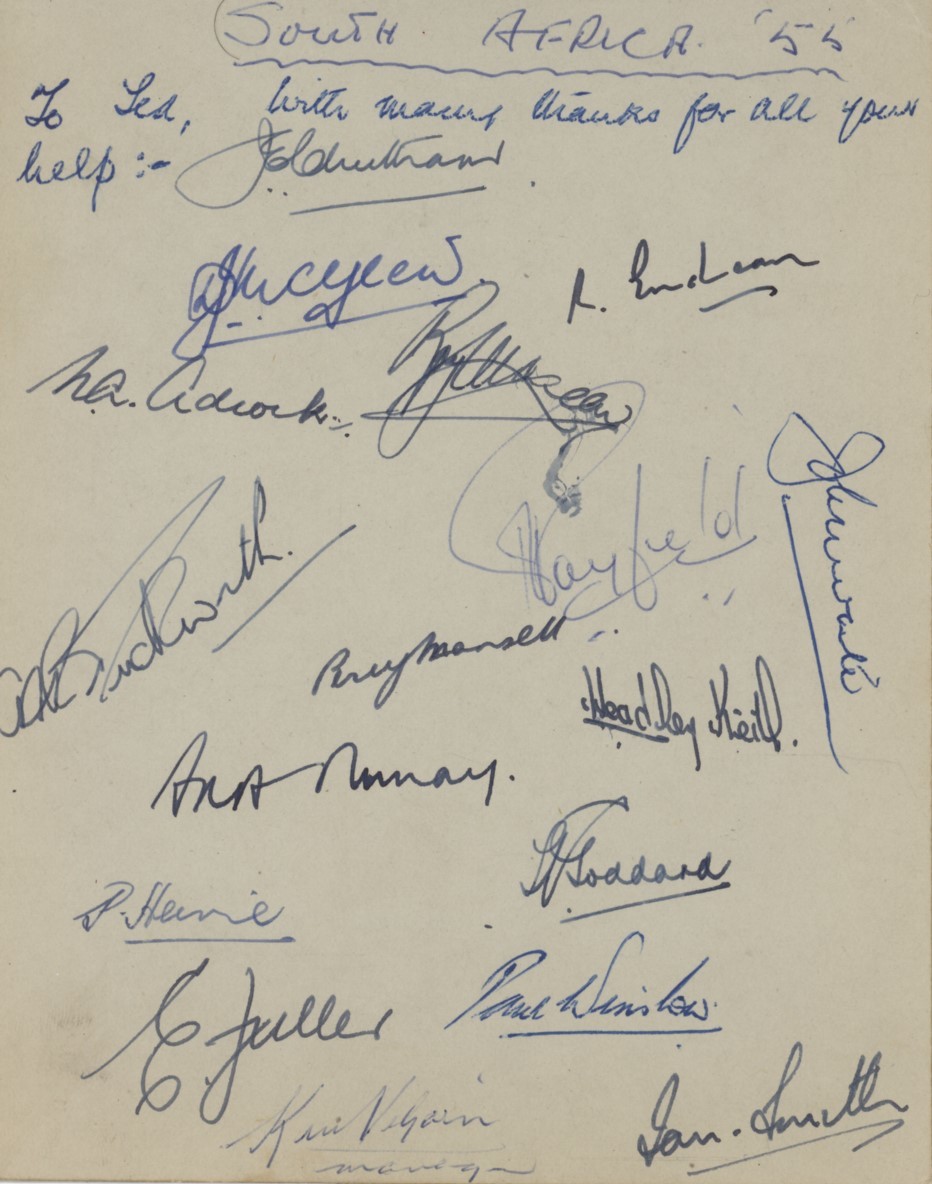 SOUTH AFRICA '55
To Ted, With many thanks for all your
help :- J E Cheetham
D J McGlew.
R. Endean
N.A. Adcock.
Roy McLean
H Tayfield
John Waite
C A R Duckworth.
Percy Mansell
Headley Keith.
Anton Murray.
T L Goddard
P. Heine
E Fuller
Paul Winslow.
Ken Viljoen
manager
Ian. Smith